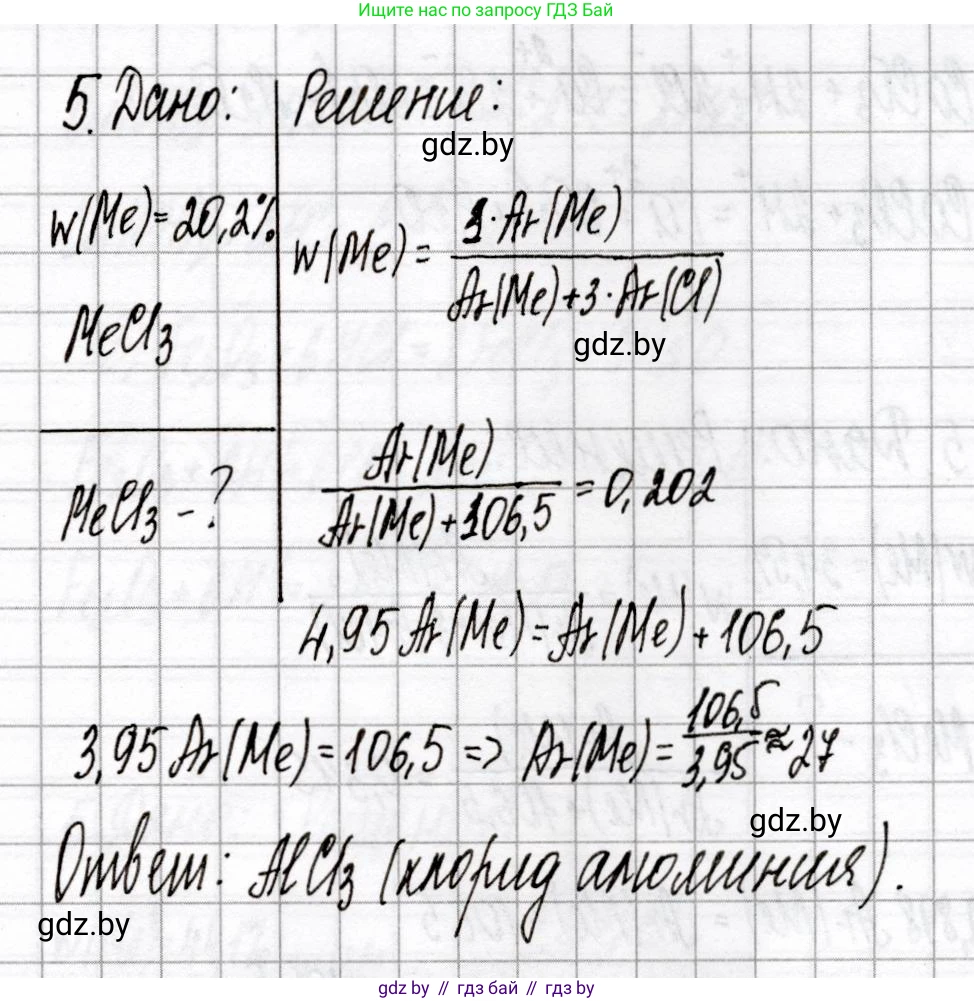 Ищите нас по запросу ГДЗ Бай
5. Дано:
Решение:
gdz.by
w(Me)=20,2%
w(Me) = 1·Ar(Me) / Ar(Me)+3·Ar(Cl)
MeCl3
gdz.by
MeCl3 - ?
Ar(Me) / Ar(Me)+106,5 = 0,202
4,95 Ar(Me) = Ar(Me) + 106,5
3,95 Ar(Me) = 106,5 => Ar(Me) = 106,5 / 3,95 ≈ 27
gdz.by
Ответ: AlCl3 (хлорид алюминия).
gdz.by
gdz.by // гдз бай // гдз by